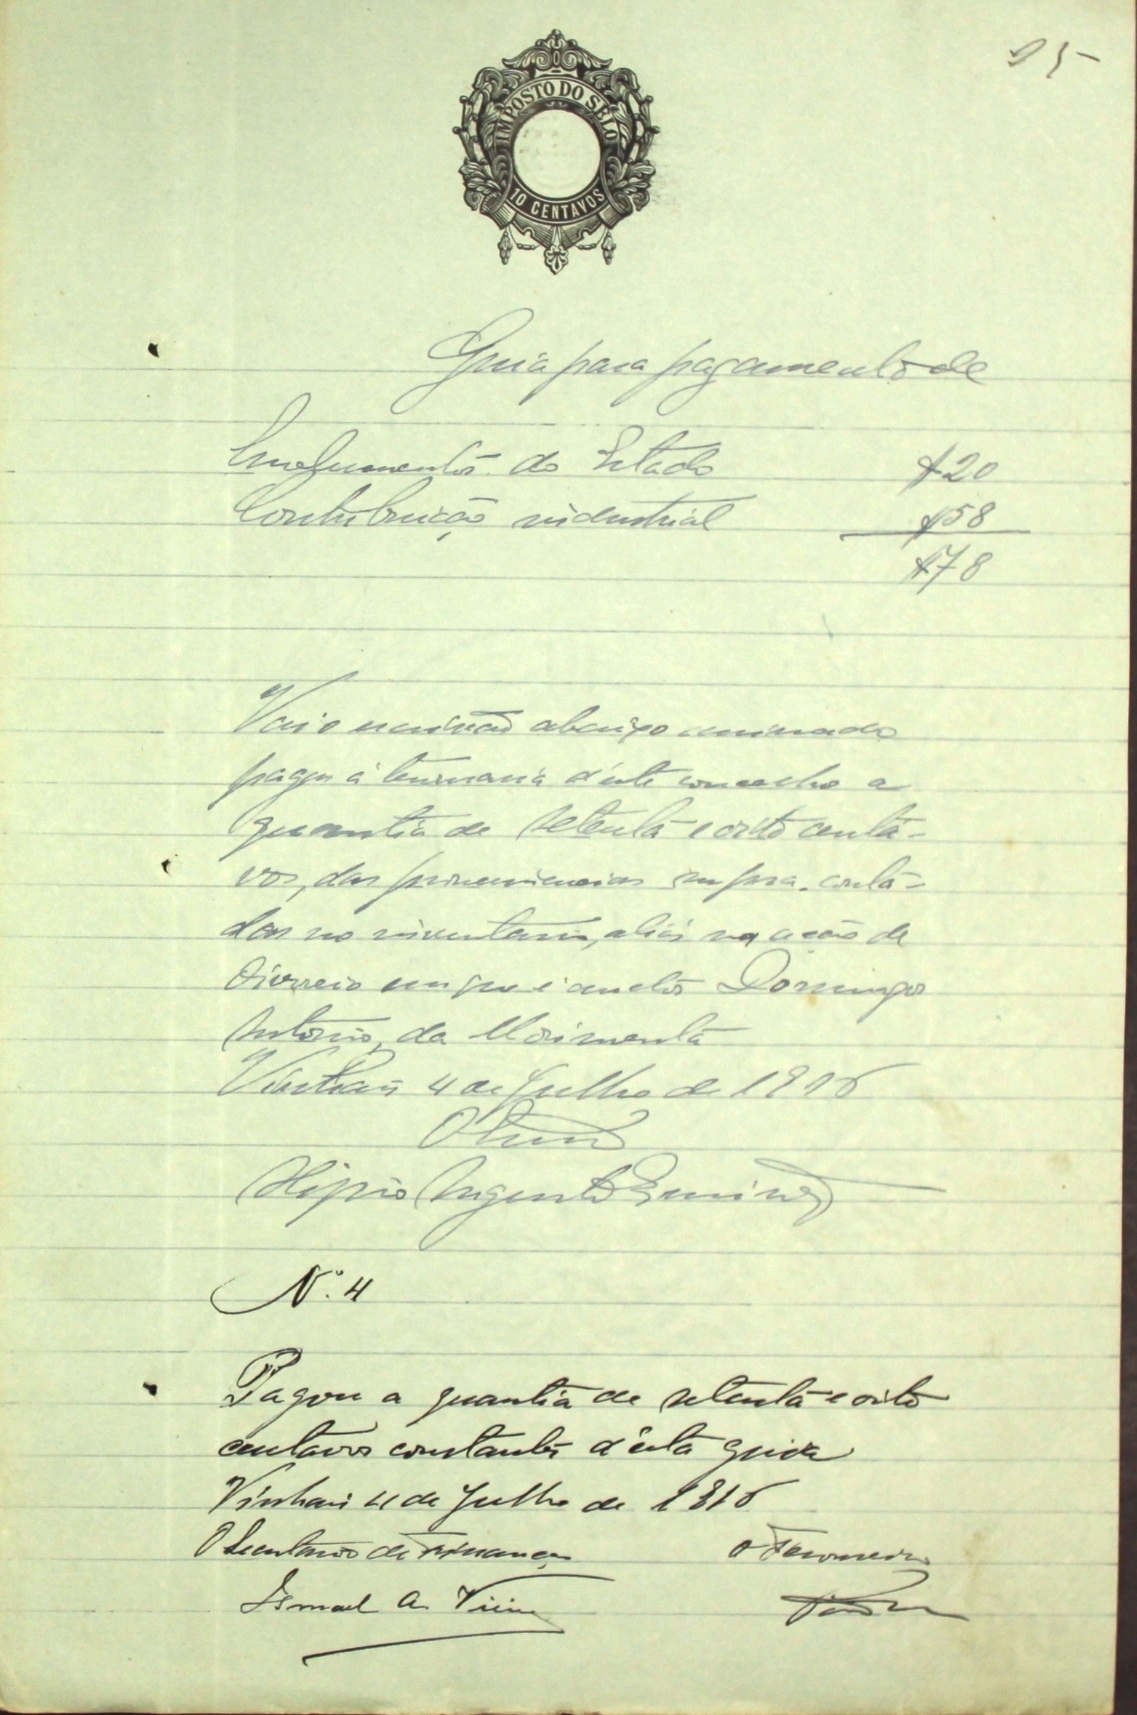 25
IMPOSTO DO SELO
10 CENTAVOS
Guia para pagamento de
Emolumentos do Estado $20
Contribuição industrial $58
$78
Vai o escrivão abaixo assinado
pagar á tesouraria d'este concelho a
quantia de setenta e oito centa-
vos, das proveniencias supra, conta-
dos no inventario, aliás na acção de
divorcio em que é auctor Domingos
Antonio, da Moimenta
Vinhais 4 de Julho de 1916
O
Nº. 4
Pagou a quantia de setenta e oito
centavos constantes d'esta guia
Vinhais 4 de Julho de 1916
O Secretario de Finanças O Tesoureiro
Ismael A.